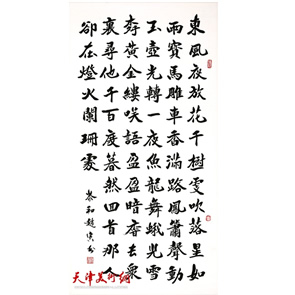 東風夜放花千樹更吹落星如
雨寶馬雕車香滿路鳳簫聲動
玉壺光轉一夜魚龍舞蛾兒雪
柳黃金縷咲語盈盈暗香去衆
裏尋他千百度驀然回首那人
卻在燈火闌珊處
天津美术网